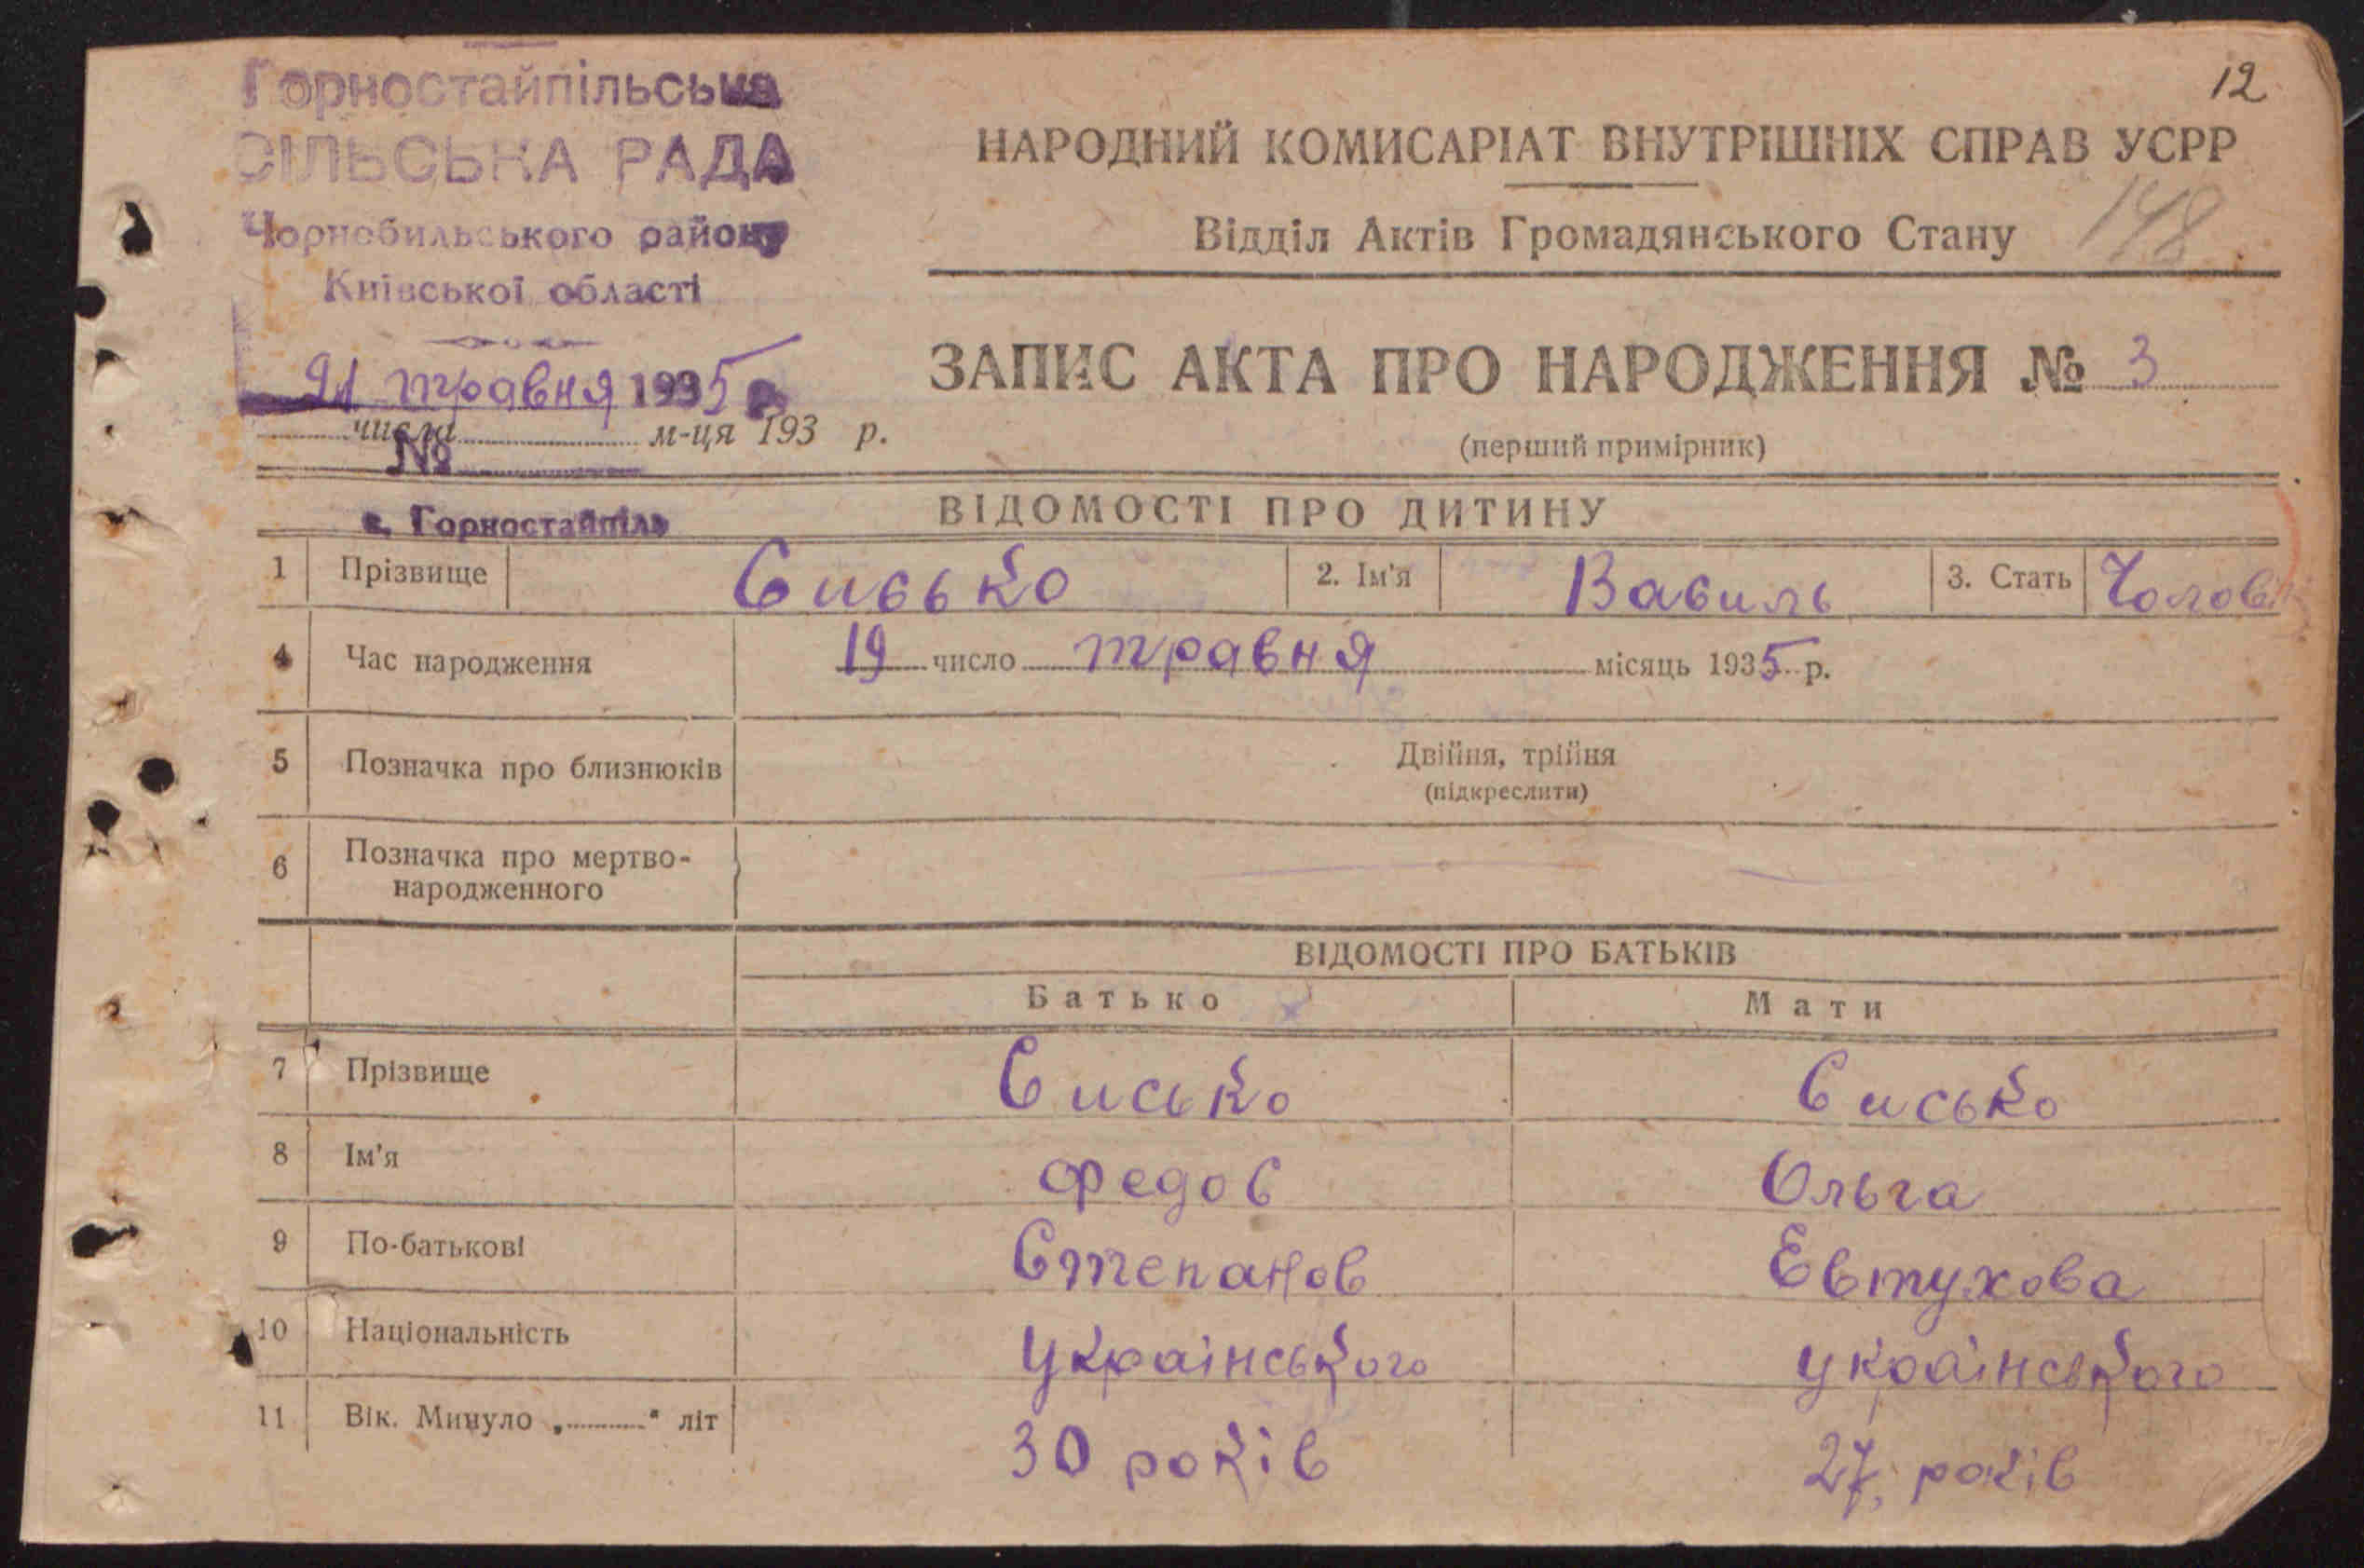 12
Горностайпільська
СІЛЬСЬКА РАДА
Чорнобильського району
Київської області
21 травня 1935 р.
числа м-ця 193 р.
№
с. Горностайпіль
НАРОДНИЙ КОМИСАРІАТ ВНУТРІШНІХ СПРАВ УСРР
Відділ Актів Громадянського Стану 148
ЗАПИС АКТА ПРО НАРОДЖЕННЯ № 3
(перший примірник)
ВІДОМОСТІ ПРО ДИТИНУ
1 Прізвище Сисько 2. Ім'я Василь 3. Стать Чолові
4 Час народження 19 число травня місяць 1935 р.
5 Позначка про близнюків Двійня, трійня
(підкреслити)
6 Позначка про мертво-
народженного
ВІДОМОСТІ ПРО БАТЬКІВ
Батько Мати
7 Прізвище Сисько Сисько
8 Ім'я Федос Ольга
9 По-батькові Степанов Евтухова
10 Національність українського українського
11 Вік. Минуло „ “ літ 30 років 27, років